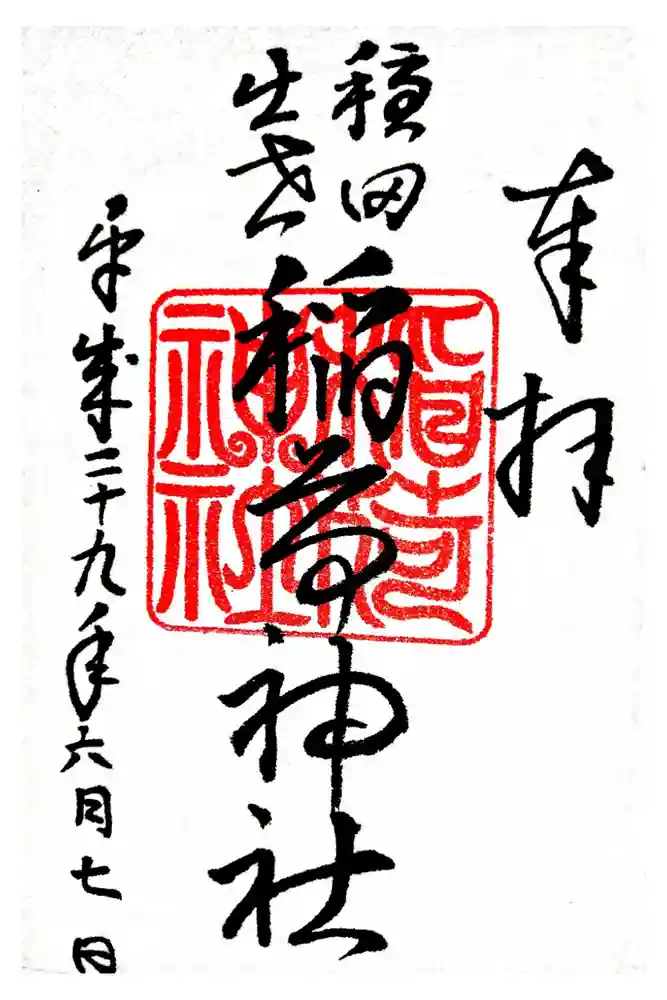 奉拝
田
出世
稲荷神社
神社
平成二十九年六月七日